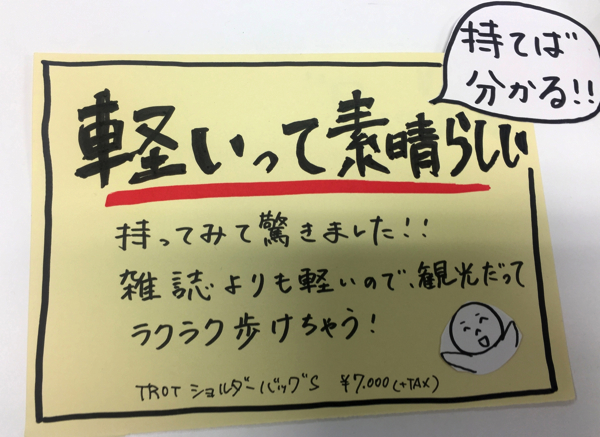 持てば
分かる!!
軽いって素晴らしい
持ってみて驚きました!!
雑誌よりも軽いので、観光だって
ラクラク歩けちゃう!
TROT ショルダーバッグS ¥7,000(+TAX)